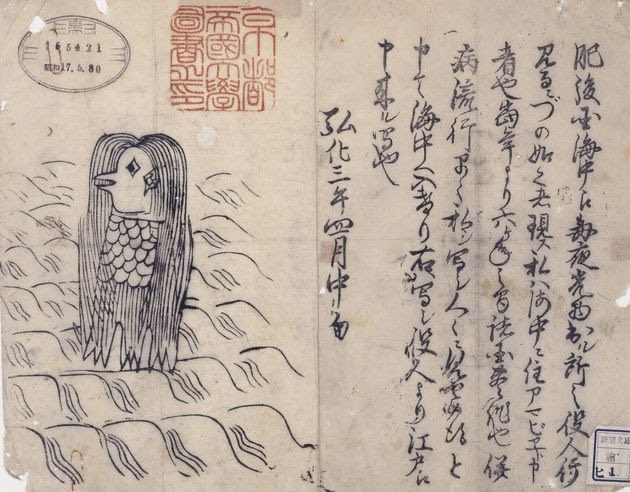 肥後国海中え毎夜光物出ル所之役人行
見るニづの如く者現ス私ハ海中ニ住アマビヱト申
者也當年より六ヶ年之間諸国豊作也併
病流行早々私シ写シ人々ニ見せ候得と
申て海中へ入けり右写シ役人より江戸え
申来ル写也
弘化三年四月中旬
京都
帝國大學
圖書之印
165421
昭和17.5.30
新聞文庫
繪
ヒ 1